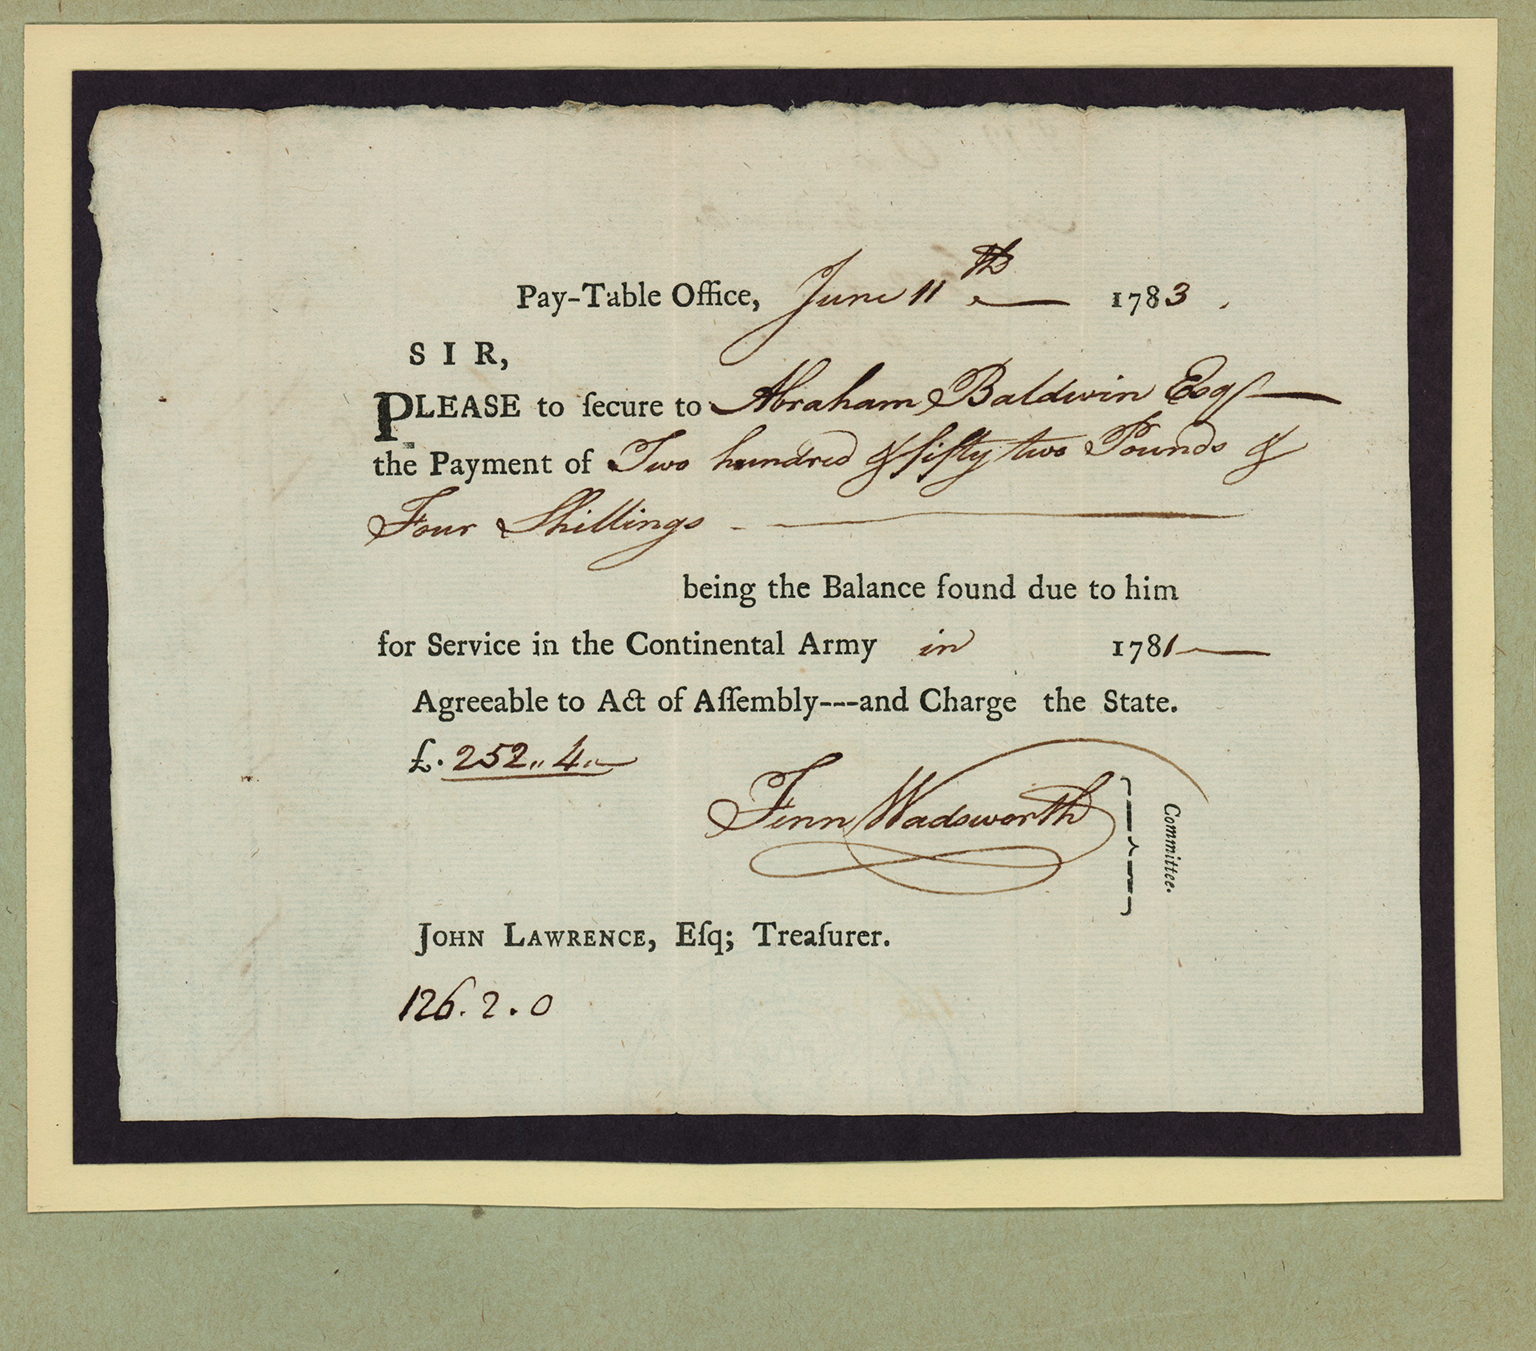 Pay-Table Office, June 11th 1783.
SIR,
PLEASE to ſecure to Abraham Baldwin Esqr
the Payment of Two hundred & fifty two Pounds &
Four Shillings
being the Balance found due to him
for Service in the Continental Army in 1781
Agreeable to Act of Aſſembly---and Charge the State.
£. 252,, 4,,
Fenn Wadsworth
Committee.
JOHN LAWRENCE, Eſq; Treaſurer.
126.2.0